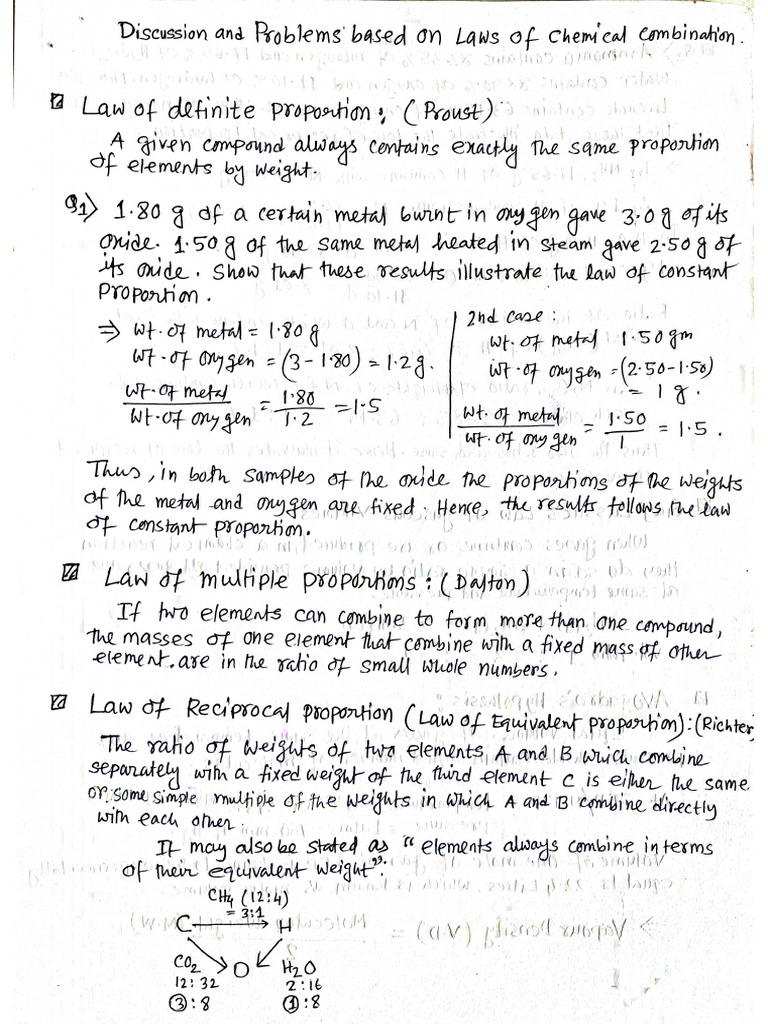 Discussion and Problems based on Laws of Chemical Combination.
Law of definite proportion: (Proust)
A given compound always contains exactly the same proportion
of elements by weight.
Q1) 1.80 g of a certain metal burnt in oxygen gave 3.0 g of its
oxide. 1.50 g of the same metal heated in steam gave 2.50 g of
its oxide. Show that these results illustrate the law of constant
proportion.
⇒ wt. of metal = 1.80 g
wt. of oxygen = (3-1.80) = 1.2 g.
wt. of metal / wt. of oxygen = 1.80 / 1.2 = 1.5
2nd case:
wt. of metal 1.50 gm
wt. of oxygen = (2.50-1.50)
= 1 g.
wt. of metal / wt. of oxygen = 1.50 / 1 = 1.5.
Thus, in both samples of the oxide the proportions of the weights
of the metal and oxygen are fixed. Hence, the results follows the law
of constant proportion.
Law of multiple proportions: (Dalton)
If two elements can combine to form more than one compound,
the masses of one element that combine with a fixed mass of other
element. are in the ratio of small whole numbers.
Law of Reciprocal proportion (Law of Equivalent proportion): (Richter)
The ratio of weights of two elements A and B which combine
separately with a fixed weight of the third element C is either the same
or some simple multiple of the weights in which A and B combine directly
with each other.
It may also be stated as "elements always combine in terms
of their equivalent weight".
CH4 (12:4)
= 3:1
C → H
CO2 O H2O
12:32 2:16
3:8 1:8